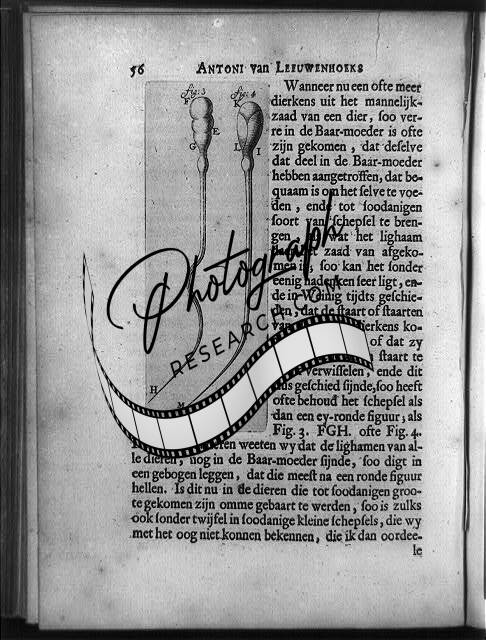 56 ANTONI van LEEUWENHOEKS
fig: 3 fig: 4
F K
E
G L I
H M
Wanneer nu een ofte meer
dierkens uit het mannelijk-
zaad van een dier, soo ver-
re in de Baar-moeder is ofte
zijn gekomen, dat deselve
dat deel in de Baar-moeder
hebben aangetroffen, dat be-
quaam is om het selve te voe-
den, ende tot soodanigen
soort van schepsel te bren-
gen wat het lighaam
zaad van afgeko-
men is, soo kan het sonder
eenig nadenken seer ligt, en-
de in weinig tijdts geschie-
den, dat de staart of staarten
van dierkens ko-
of dat zy
staart te
verwisselen, ende dit
dus geschied sijnde, soo heeft
ofte behoud het schepsel als
dan een ey-ronde figuur; als
Fig. 3. FGH. ofte Fig. 4.
weeten wy dat de lighamen van al-
le dieren, nog in de Baar-moeder sijnde, soo digt in
een gebogen leggen, dat die meest na een ronde figuur
hellen. Is dit nu in de dieren die tot soodanigen groo-
te gekomen zijn omme gebaart te werden, soo is zulks
ook sonder twijfel in soodanige kleine schepsels, die wy
met het oog niet konnen bekennen, die ik dan oordee-
le
Photograph
RESEARCH.COM